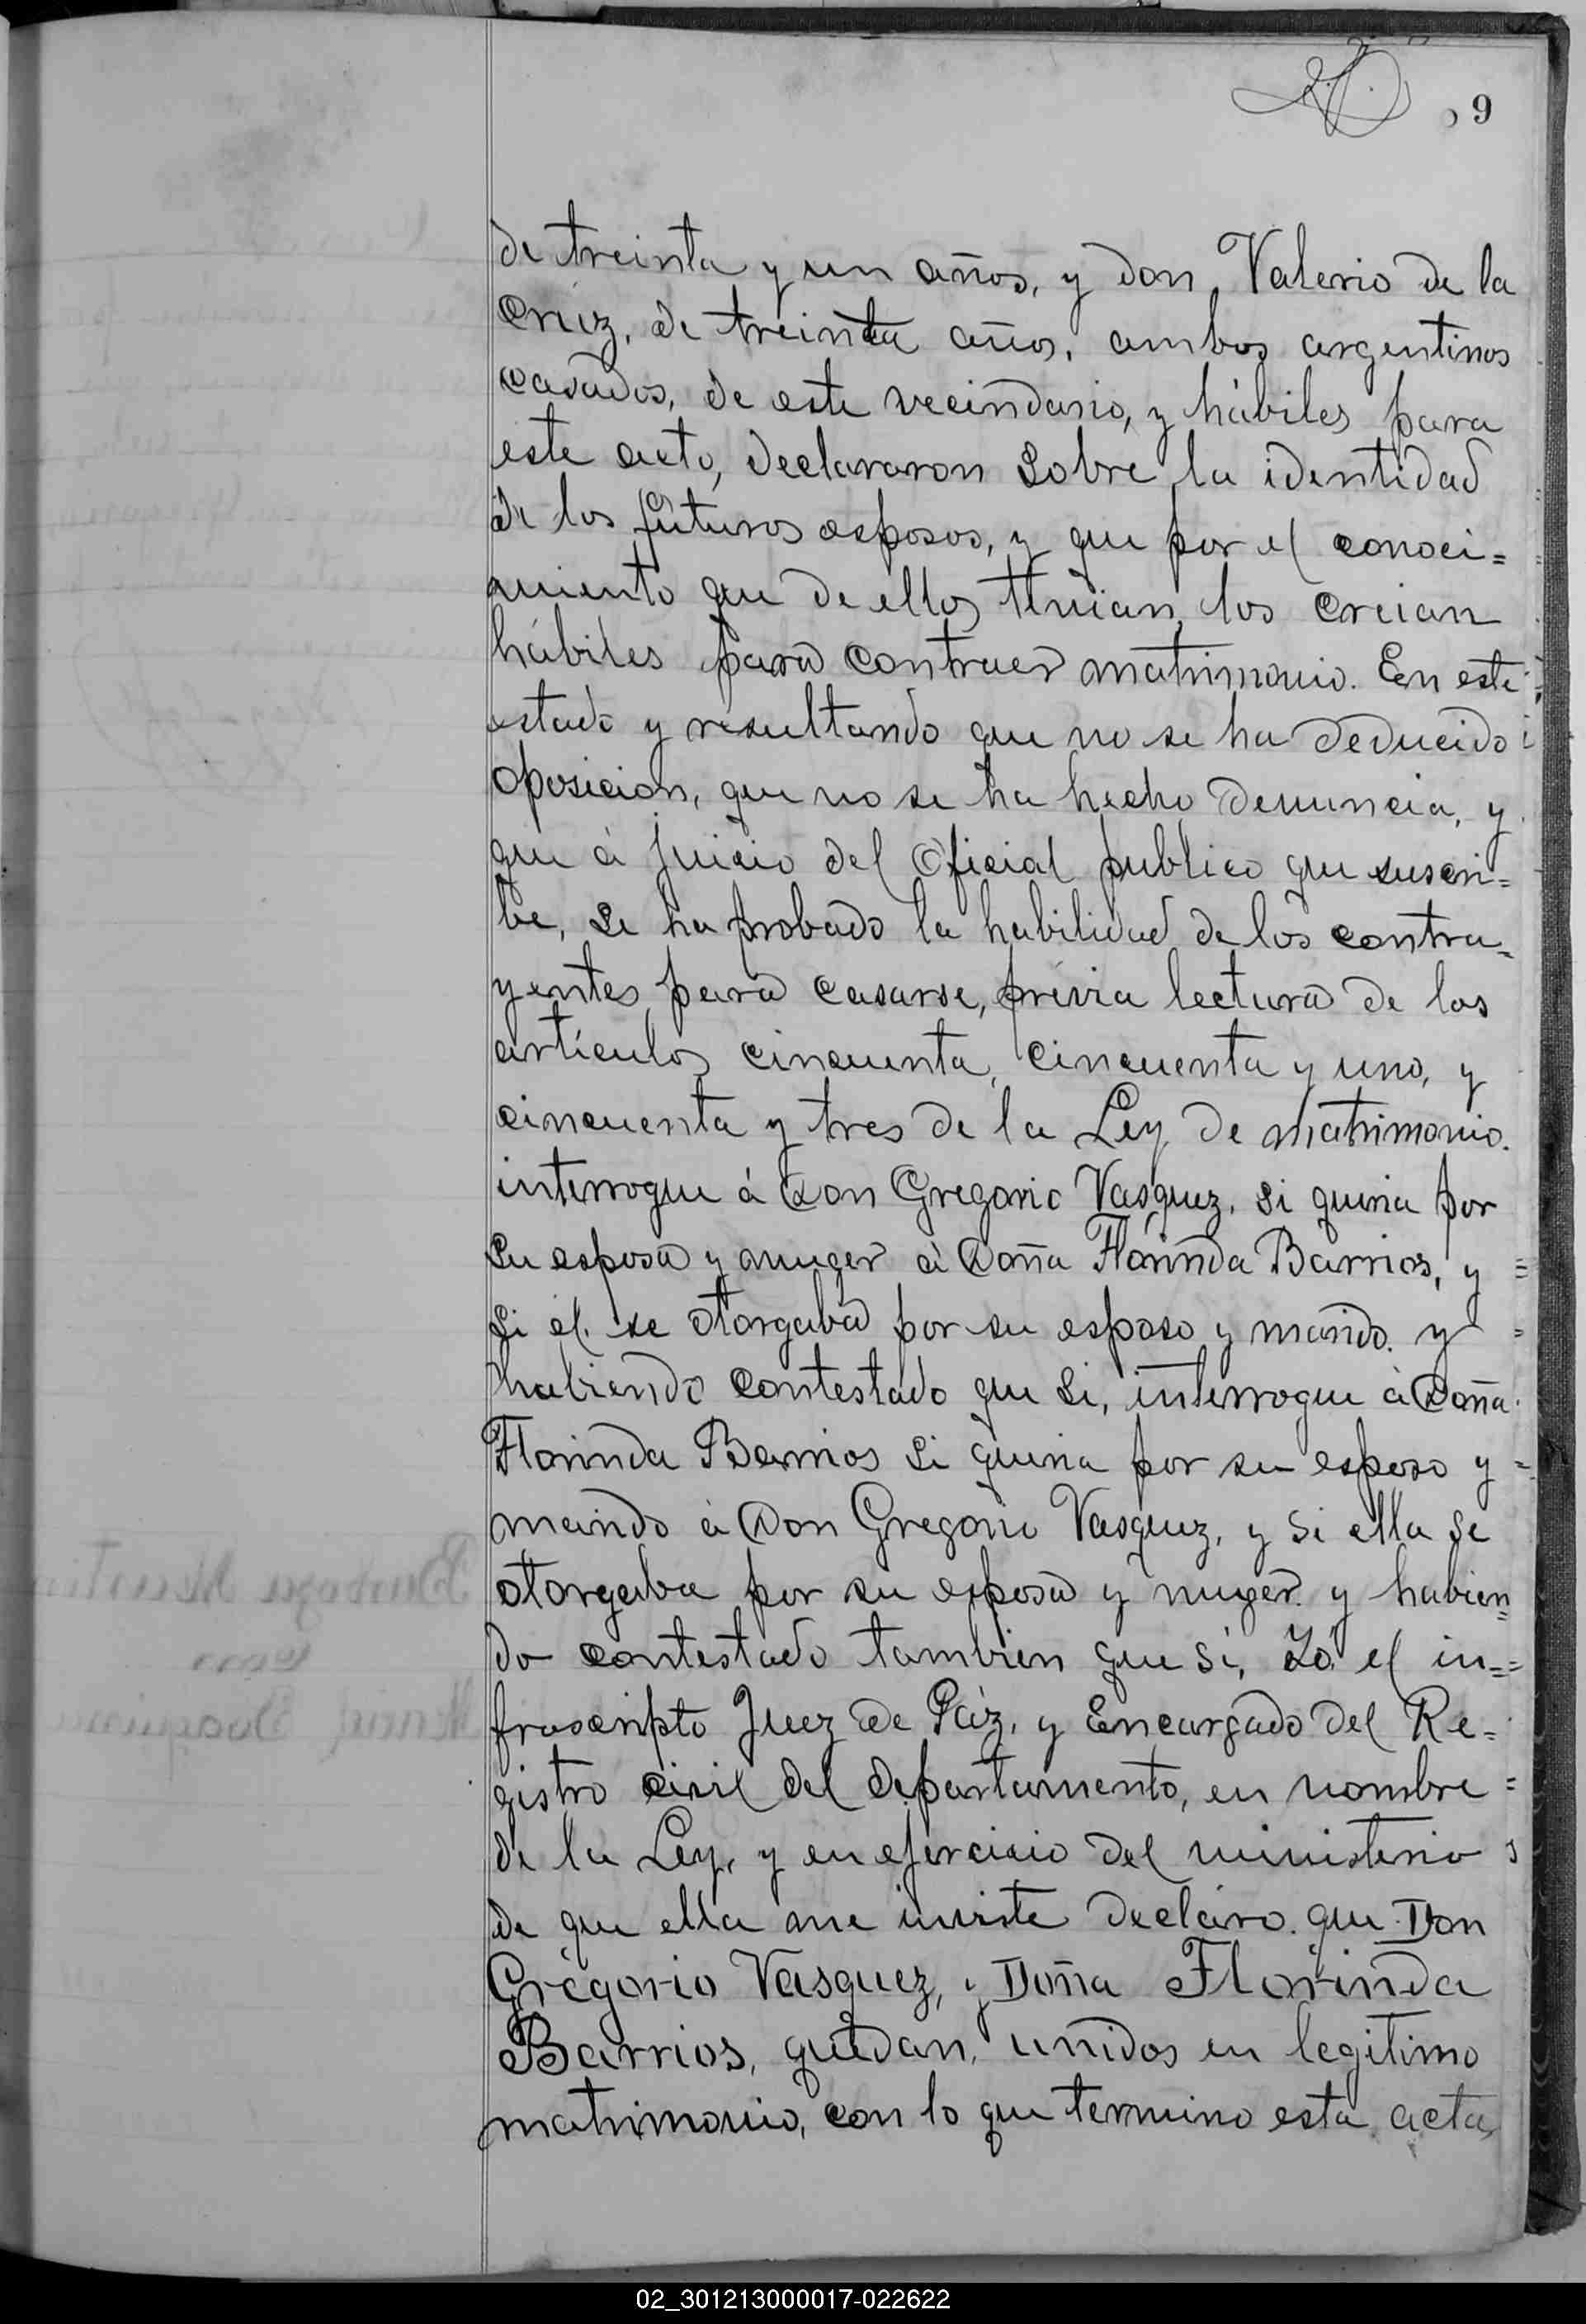 9
de treinta y un años, y don Valerio de la
Cruz, de treinta años, ambos argentinos
casados, de este vecindario, y hábiles para
este acto, declararon sobre la identidad
de los futuros esposos, y que por el conoci=
miento que de ellos tenian, los creian
hábiles para contraer matrimonio. En este
estado y resultando que no se ha deducido
oposicion, que no se ha hecho denuncia, y
que á juicio del Oficial publico que suscri=
be, se ha probado la habilidad de los contra=
yentes para casarse, previa lectura de los
artículos cincuenta, cincuenta y uno, y
cincuenta y tres de la Ley de matrimonio.
interrogue á Don Gregorio Vasquez, si queria por
su esposa y muger á Doña Florinda Barrios, y
si él se otorgaba por su esposo y marido. y
habiendo contestado que si, interrogue á Doña
Florinda Barrios si queria por su esposo y
marido á Don Gregorio Vasquez, y si ella se
otorgaba por su esposa y muger. y habien=
do contestado tambien que si, Yo el in=
frascripto Juez de Páz, y Encargado del Re=
gistro civil del departamento, en nombre
de la Ley, y en ejercicio del ministerio
de que ella me inviste declaro que Don
Gregorio Vasquez, y Doña Florinda
Barrios, quedan, unidos en legitimo
matrimonio, con lo que termino esta acta,
02_301213000017-022622